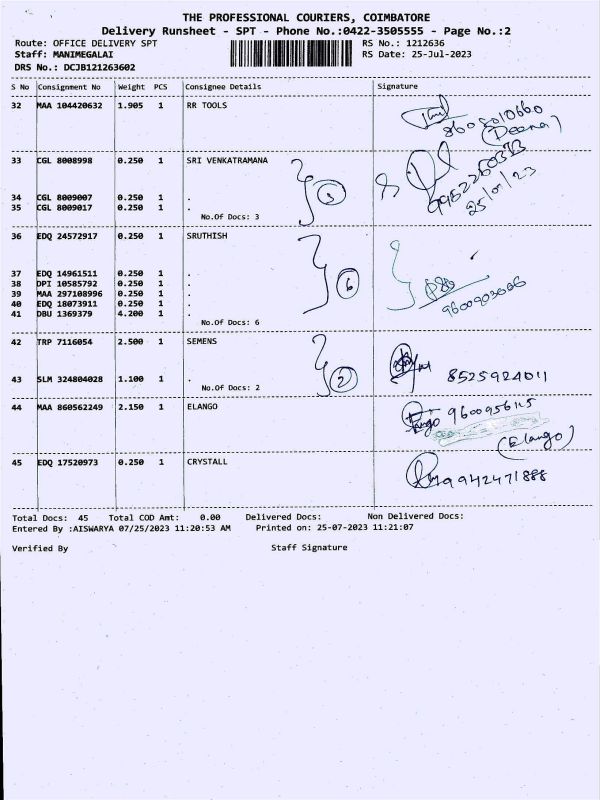 THE PROFESSIONAL COURIERS, COIMBATORE
Delivery Runsheet - SPT - Phone No.:0422-3505555 - Page No.:2
Route: OFFICE DELIVERY SPT RS No.: 1212636
Staff: MANIMEGALAI RS Date: 25-Jul-2023
DRS No.: DCJB121263602
S No Consignment No Weight PCS Consignee Details Signature
32 MAA 104420632 1.905 1 RR TOOLS
(Deena)
33 CGL 8008998 0.250 1 SRI VENKATRAMANA
3
34 CGL 8009007 0.250 1 .
35 CGL 8009017 0.250 1 .
No.Of Docs: 3
36 EDQ 24572917 0.250 1 SRUTHISH
37 EDQ 14961511 0.250 1 .
38 DPI 10585792 0.250 1 .
6
39 MAA 297108996 0.250 1 .
40 EDQ 18073911 0.250 1 .
41 DBU 1369379 4.200 1 .
No.Of Docs: 6
42 TRP 7116054 2.500 1 SEMENS
43 SLM 324804028 1.100 1 . 2 8525924011
No.Of Docs: 2
44 MAA 860562249 2.150 1 ELANGO
(Elango)
45 EDQ 17520973 0.250 1 CRYSTALL
9942471888
Total Docs: 45 Total COD Amt: 0.00 Delivered Docs: Non Delivered Docs:
Entered By :AISWARYA 07/25/2023 11:20:53 AM Printed on: 25-07-2023 11:21:07
Verified By Staff Signature